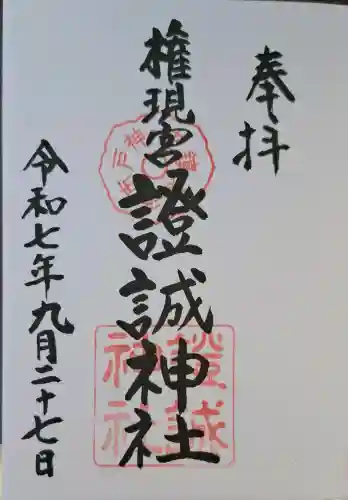 奉拝
権現宮
證誠神社
令和七年九月二十七日
證誠
神社